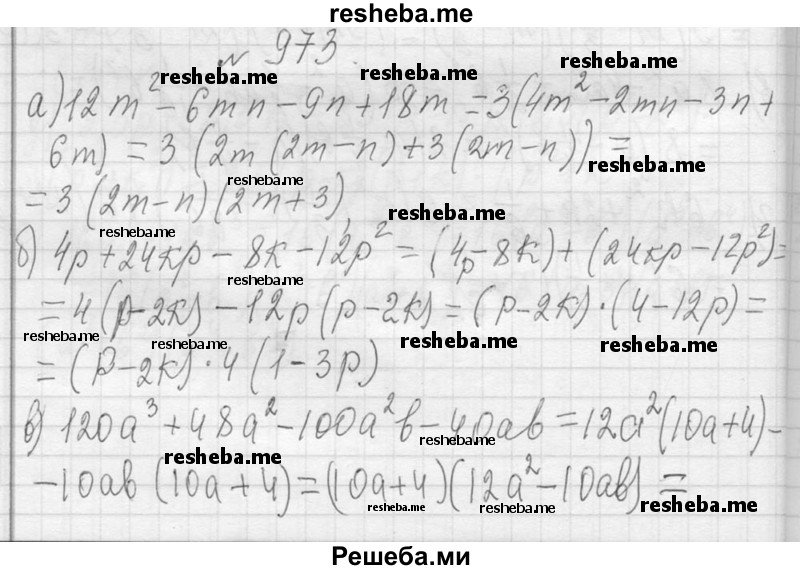 resheba.me
№ 973.
resheba.me resheba.me resheba.me
а) 12m² - 6mn - 9n + 18m = 3(4m² - 2mn - 3n +
6m) = 3 (2m (2m - n) + 3 (2m - n)) =
resheba.me resheba.me
= 3 (2m - n) (2m + 3)
resheba.me resheba.me
б) 4p + 24кp - 8к - 12p² = (4p - 8к) + (24кp - 12p²) =
resheba.me
= 4 (p - 2к) - 12p (p - 2к) = (p - 2к) · (4 - 12p) =
resheba.me resheba.me resheba.me resheba.me
= (p - 2к) · 4 (1 - 3p)
в) 120a³ + 48a² - 100a²b - 40ab = 12a² (10a + 4) -
resheba.me resheba.me
- 10ab (10a + 4) = (10a + 4) (12a² - 10ab) =
resheba.me resheba.me resheba.me
Решеба.ми